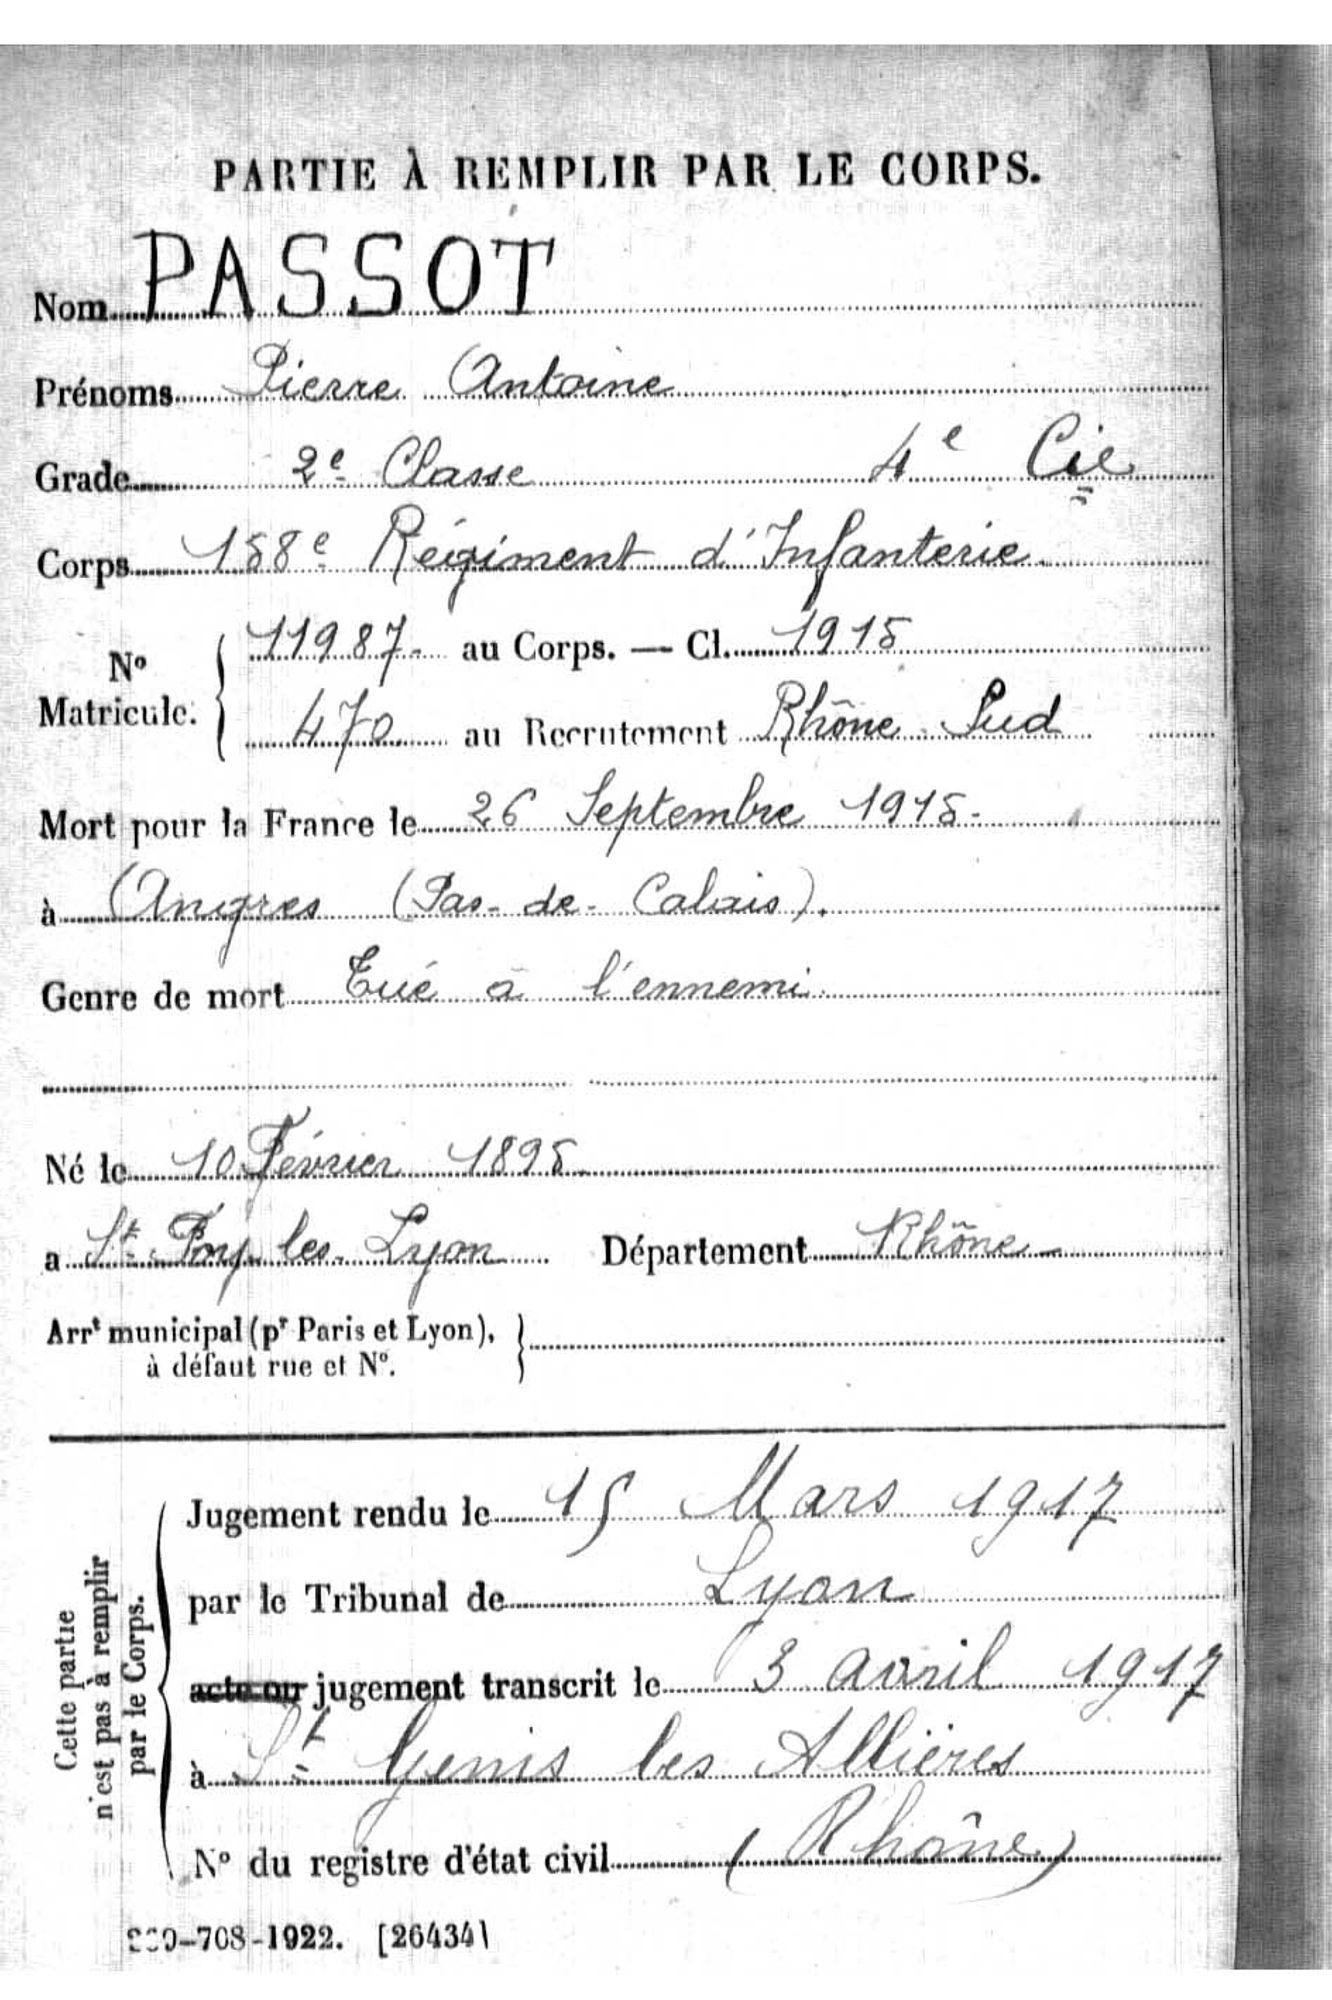 PARTIE À REMPLIR PAR LE CORPS.
Nom PASSOT
Prénoms Pierre Antoine
Grade 2e Classe 4e Cie
Corps 158e Régiment d'Infanterie
No Matricule. { 11987 au Corps. — Cl. 1915
470 au Recrutement Rhône Sud
Mort pour la France le 26 Septembre 1915
à Angres (Pas-de-Calais).
Genre de mort Tué à l'ennemi
Né le 10 Février 1895
a St Foy-les-Lyon Département Rhône
Arrt municipal (pr Paris et Lyon), }
à défaut rue et No.
Cette partie n'est pas à remplir par le Corps.
Jugement rendu le 15 Mars 1917
par le Tribunal de Lyon
acte ou jugement transcrit le 3 avril 1917
à St Genis les Allières
No du registre d'état civil (Rhône)
-708-1922. [26434]